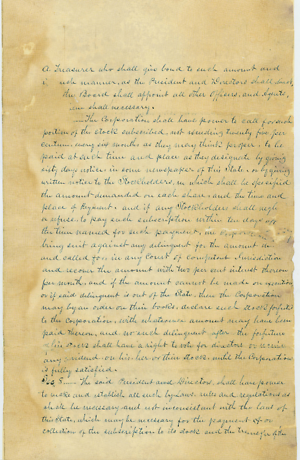 A Treasurer who shall give bond to such amount and
such manner, as the President and Directors shall direct,
the Board shall appoint all other Officers, and Agents,
as shall necessary.
The Corporation shall have power to call for such
portion of the stock subscribed, not exceeding twenty five per
centum every six months as they may think proper. to be
paid at such time and place as they designate by giving
sixty days notice in some newspaper of this State. or by giving
written notice to the Stockholders, in which shall be specified
the amount demanded on each share and the time and
place of payment. and if any Stockholder shall neglect
or refuse to pay such subscription within ten days after
the time named for such payment, the corporation
bring suit against any delinquent for the amount
and called for in any Court of competent Jurisdiction
and recover the amount with two per cent interest thereon
per month, and if the amount cannot be made on execution
or if said delinquent is out of the State, then the Corporation
may by an order on their books, declare such stock forfeited
to the Corporation, with whatsoever amount may have been
paid thereon, and no such delinquent after the forfeiture
of his stock shall have a right to vote for directors or receive
any dividend on his her or their stock until the Corporation
is fully satisfied.
The said President and Directors shall have power
to make and establish all such by-laws rules and regulations as
shall be necessary and not inconsistent with the laws of
this State, which may be necessary for the payment of or
collection of the subscription to its stock and the transfer of the